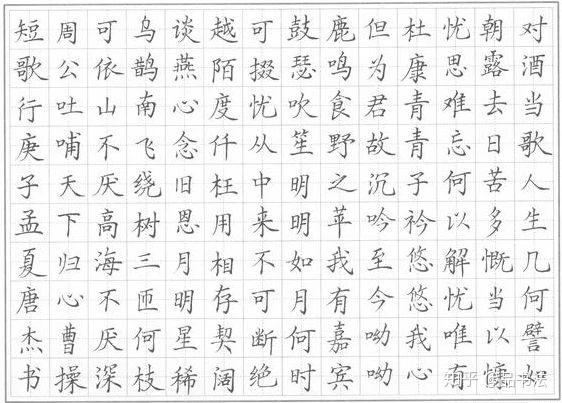 对酒当歌人生几何譬如
朝露去日苦多慨当以慷
忧思难忘何以解忧唯有
杜康青青子衿悠悠我心
但为君故沉吟至今呦呦
鹿鸣食野之苹我有嘉宾
鼓瑟吹笙明明如月何时
可掇忧从中来不可断绝
越陌度仟枉用相存契阔
谈燕心念旧恩月明星稀
乌鹊南飞绕树三匝何枝
可依山不厌高海不厌深
周公吐哺天下归心曹操
短歌行庚子孟夏唐杰书
知乎